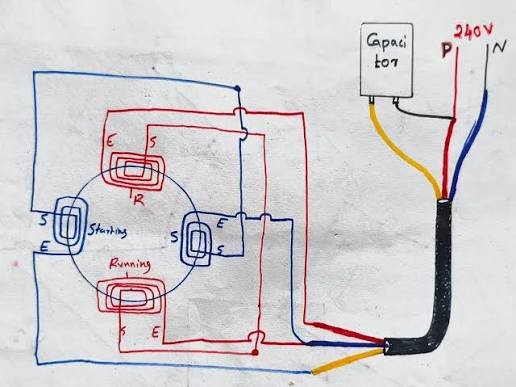 240V
P N
Capaci
tor
E S
R
S
E
Starting
E
S
S
Running
S E